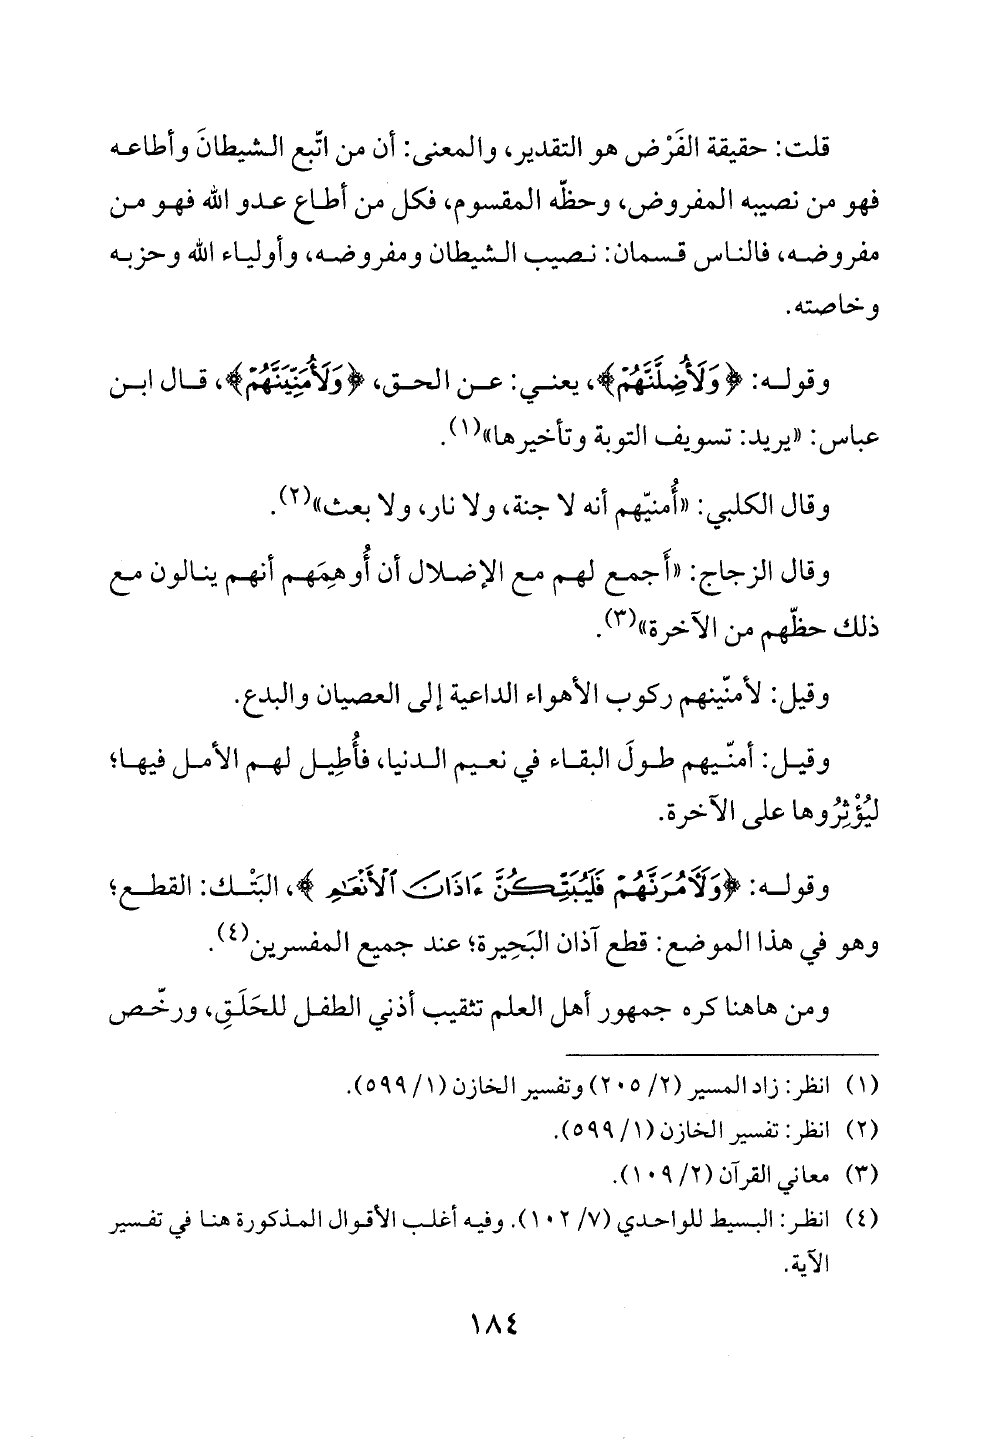 قلت: حقيقة الفَرْض هو التقدير، والمعنى: أن من اتّبع الشيطانَ وأطاعه
فهو من نصيبه المفروض، وحظّه المقسوم، فكل من أطاع عدو الله فهو من
مفروضه، فالناس قسمان: نصيب الشيطان ومفروضه، وأولياء الله وحزبه
وخاصته.
وقوله: ﴿وَلَأُضِلَّنَّهُمْ﴾، يعني: عن الحق، ﴿وَلَأُمَنِّيَنَّهُمْ﴾، قال ابن
عباس: «يريد: تسويف التوبة وتأخيرها»(١).
وقال الكلبي: «أُمنيّهم أنه لا جنة، ولا نار، ولا بعث»(٢).
وقال الزجاج: «أَجمع لهم مع الإضلال أن أُوهِمَهم أنهم ينالون مع
ذلك حظّهم من الآخرة»(٣).
وقيل: لأمنّينهم ركوب الأهواء الداعية إلى العصيان والبدع.
وقيل: أمنّيهم طولَ البقاء في نعيم الدنيا، فأُطِيل لهم الأمل فيها؛
ليُؤْثِرُوها على الآخرة.
وقوله: ﴿وَلَآمُرَنَّهُمْ فَلَيُبَتِّكُنَّ ءَاذَانَ ٱلْأَنْعَٰمِ﴾، البَتْك: القطع؛
وهو في هذا الموضع: قطع آذان البَحِيرة؛ عند جميع المفسرين(٤).
ومن هاهنا كره جمهور أهل العلم تثقيب أذني الطفل للحَلَقِ، ورخّص
(١) انظر: زاد المسير (٢/ ٢٠٥) وتفسير الخازن (١/ ٥٩٩).
(٢) انظر: تفسير الخازن (١/ ٥٩٩).
(٣) معاني القرآن (٢/ ١٠٩).
(٤) انظر: البسيط للواحدي (٧/ ١٠٢). وفيه أغلب الأقوال المذكورة هنا في تفسير
الآية.
١٨٤